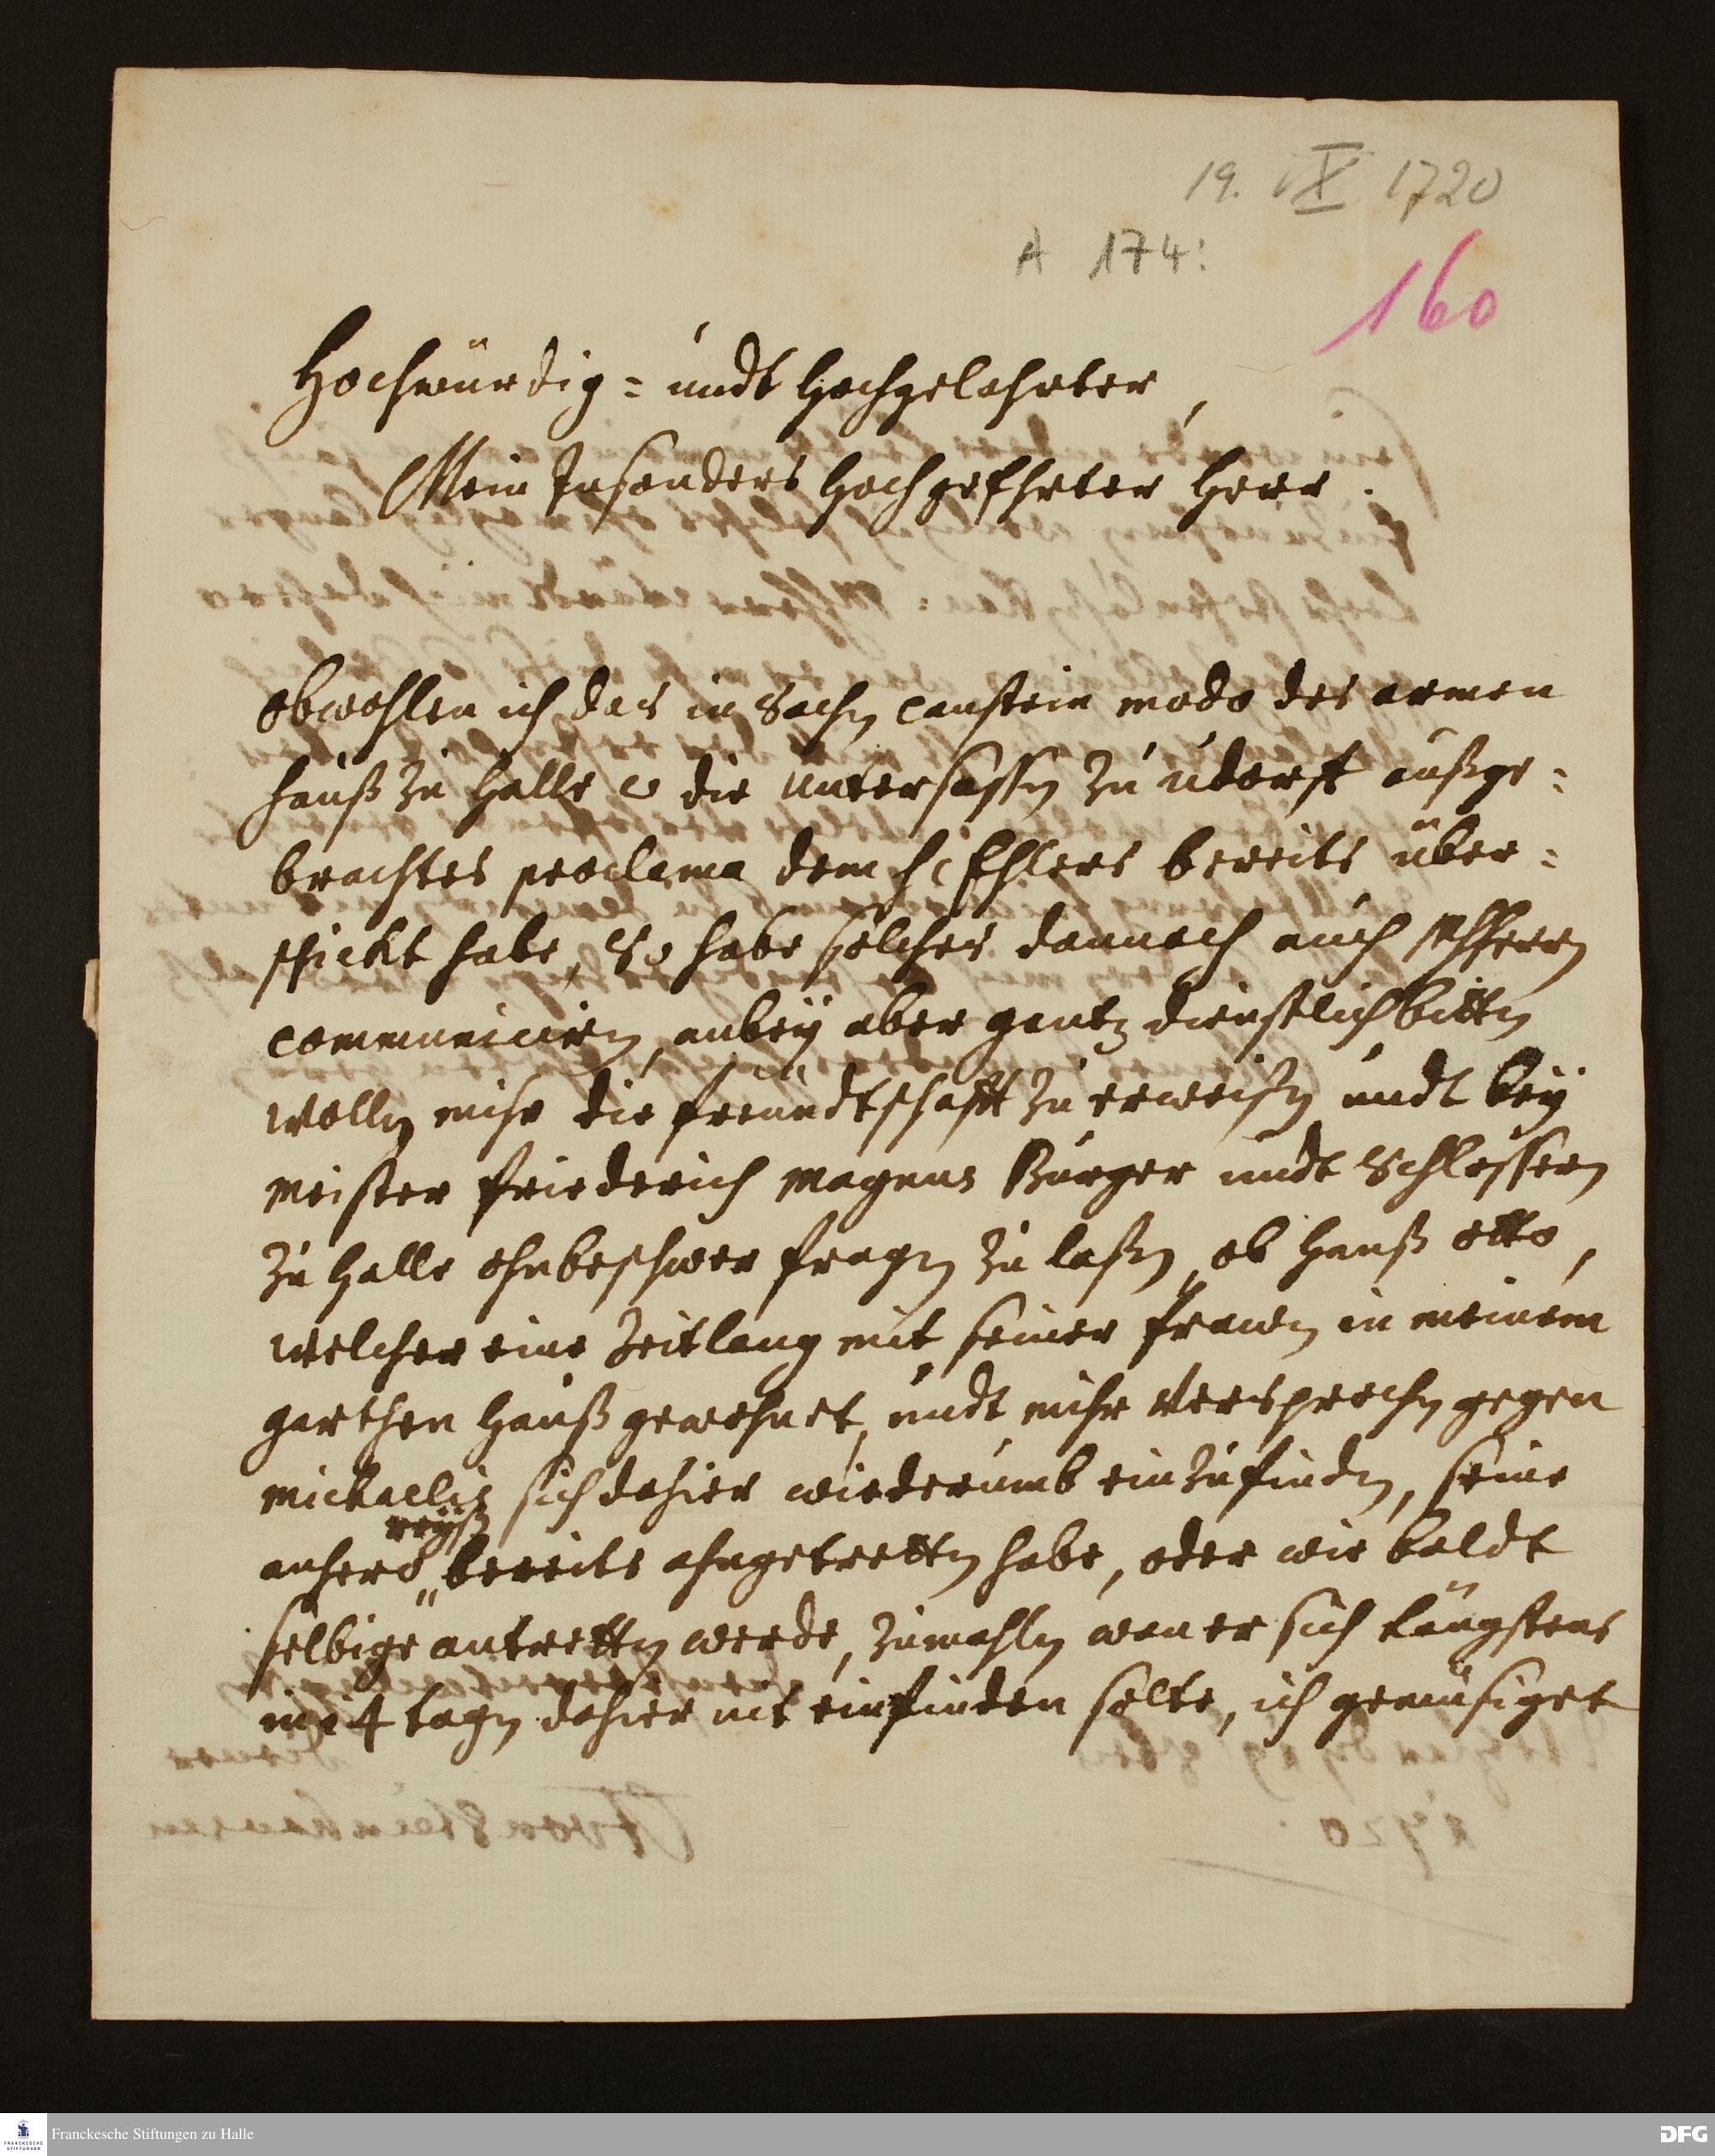 19. IX 1720
A 174:
160
Hochwürdig= undt Hochgelahrter,
Mein Insonders Hochgeehrter Herr.
obwohlen ich das in Sachen Canstein modo des armen
hauß zu Halle c die Untersassen zu udorff außge=
brachtes proclama dem H. Ehlers bereits über=
schickt habe, So habe solches dannoch auch MhHerrn
communiciren, anbey aber gantz dienstlich bitten
wollen mihr die freundtschafft zu erweisen undt bey
Meister Friederich Magnus Bürger undt Schlossern
zu Halle ohnbeschwer fragen zu laßen, ob Hanß Otto,
welcher eine Zeitlang mit seiner frawen in meinem
garthen Hauß gewohnet, undt mihr versprochen gegen
Michaelis sich dahier wiederumb einzufinden, seine
reyß
anhero bereits ahngetretten habe, oder wie baldt
selbige antretten werde, zumahlen wan er sich längstens
in 14 tagen dahier nit einfinden solte, ich gemüsiget
Franckesche Stiftungen zu Halle
FRANCKESCHE
STIFTUNGEN
DFG